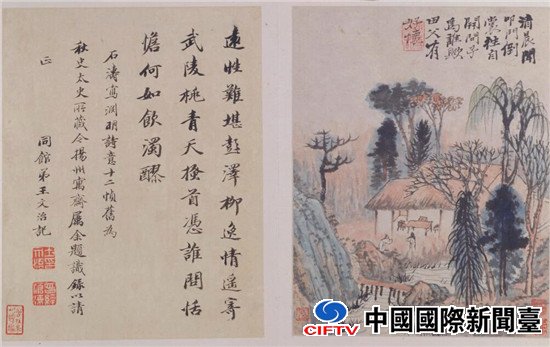 清晨聞
叩門倒
裳往自
開問子
為誰歟
田父有
好懷
遠性難堪彭澤柳逸情遙寄
武陵桃青天搔首憑誰問恬
憺何如飲濁醪
石濤寫淵明詩意十二幀舊為
太史所藏今揚州寓齋屬余題識錄以請
正
同館弟王文治記
CIFTV
中國國際新聞臺